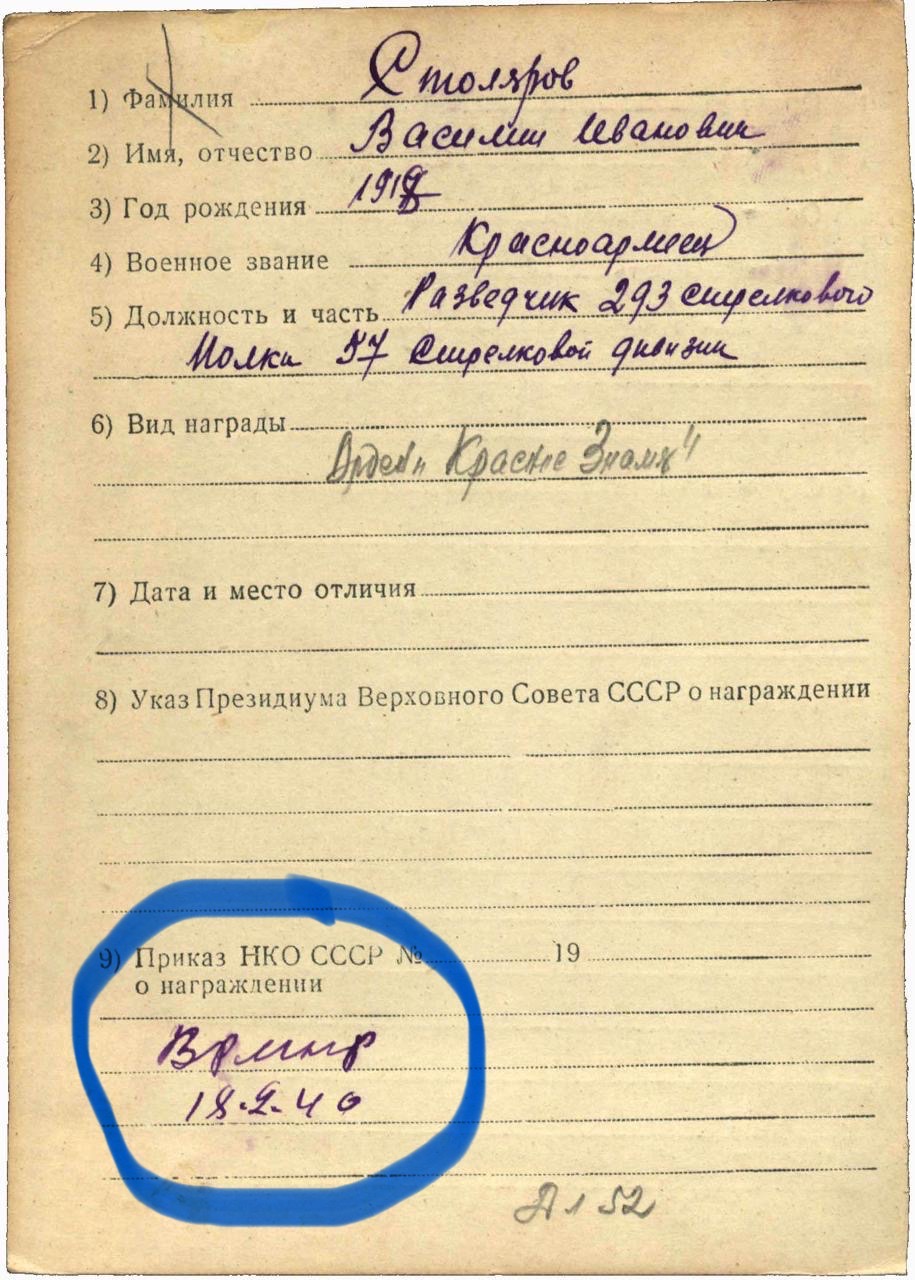 1) Фамилия Столяров
2) Имя, отчество Василий Иванович
3) Год рождения
4) Военное звание Красноармеец
5) Должность и часть Разведчик 293 стрелкового
Полка 57 Стрелковой дивизии
6) Вид награды
Орден „Красное Знамя“
7) Дата и место отличия
8) Указ Президиума Верховного Совета СССР о награждении
9) Приказ НКО СССР № 19
о награждении